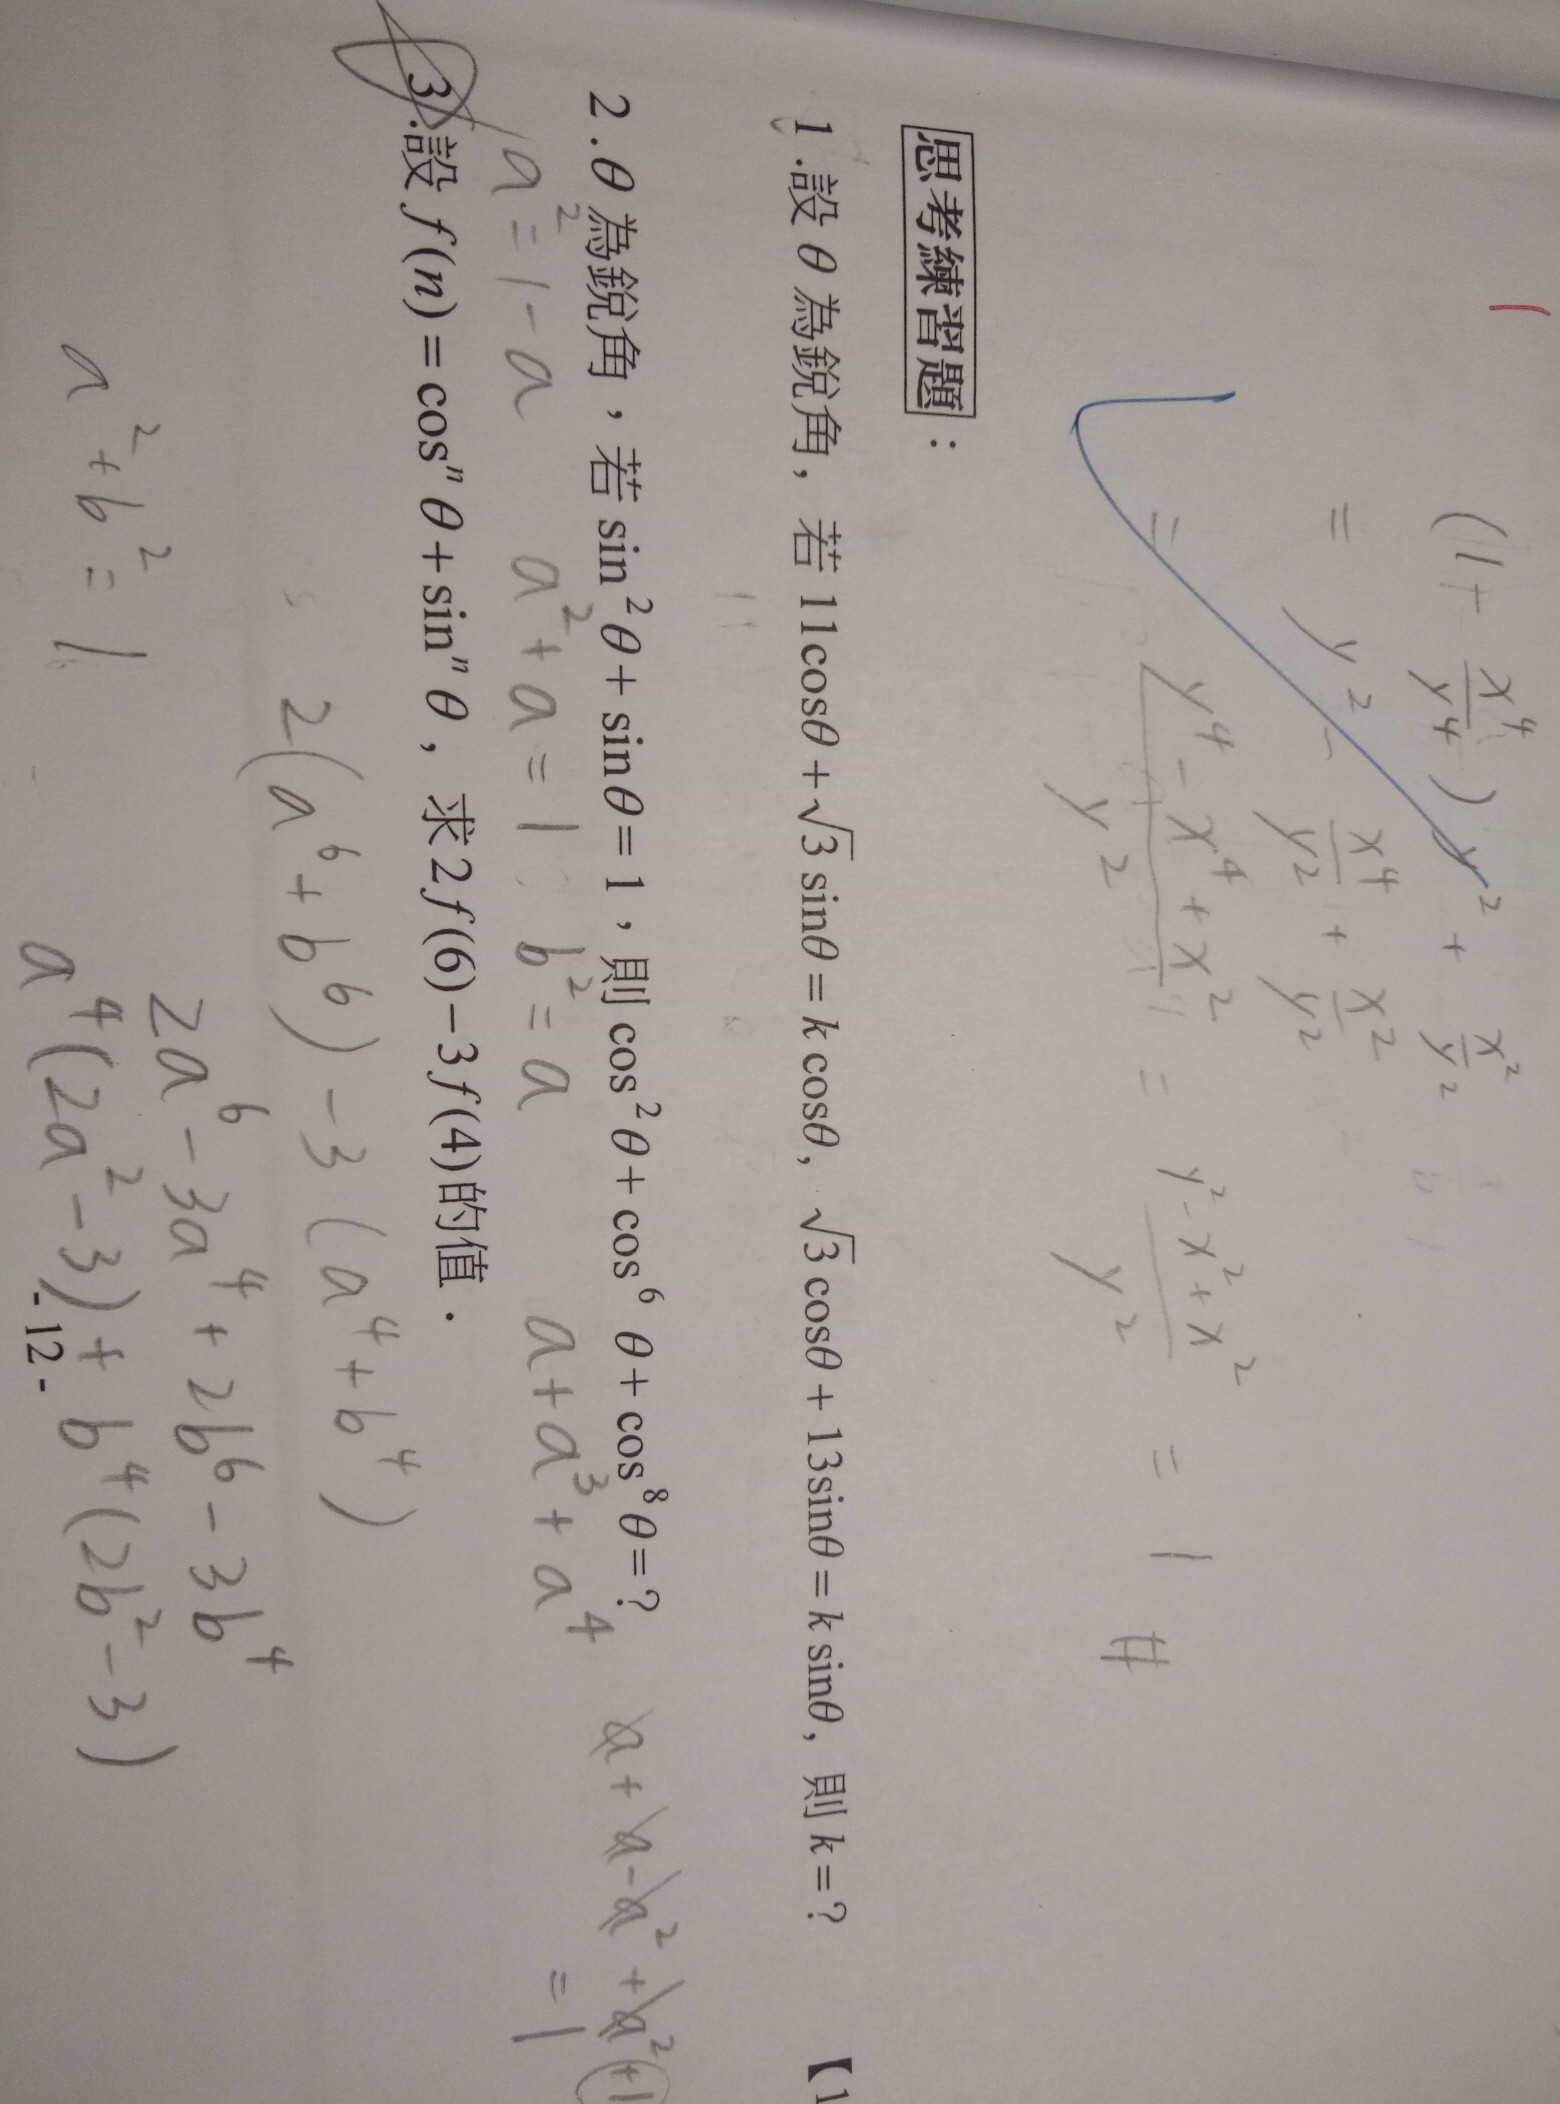 (1 - x⁴/y⁴) y² + x²/y²
= y² - x⁴/y² + x²/y²
= (y⁴ - x⁴ + x²)/y² = (y² - x² + x²)/y² = 1 #
思考練習題：
1.設 θ 為銳角，若 11cosθ+√3 sinθ=k cosθ，√3 cosθ+13sinθ=k sinθ，則 k=？ 【1
2.θ 為銳角，若 sin²θ+sinθ=1，則 cos²θ+cos⁶θ+cos⁸θ=？
a + a - a² + a² + 1
a² = 1 - a a² + a = 1 b² = a a + a³ + a⁴ = 1
3.設 f(n)=cosⁿθ+sinⁿθ，求 2f(6)-3f(4)的值．
2(a⁶ + b⁶) - 3(a⁴ + b⁴)
2a⁶ - 3a⁴ + 2b⁶ - 3b⁴
a² + b² = 1
a⁴(2a² - 3) + b⁴(2b² - 3)
-12-